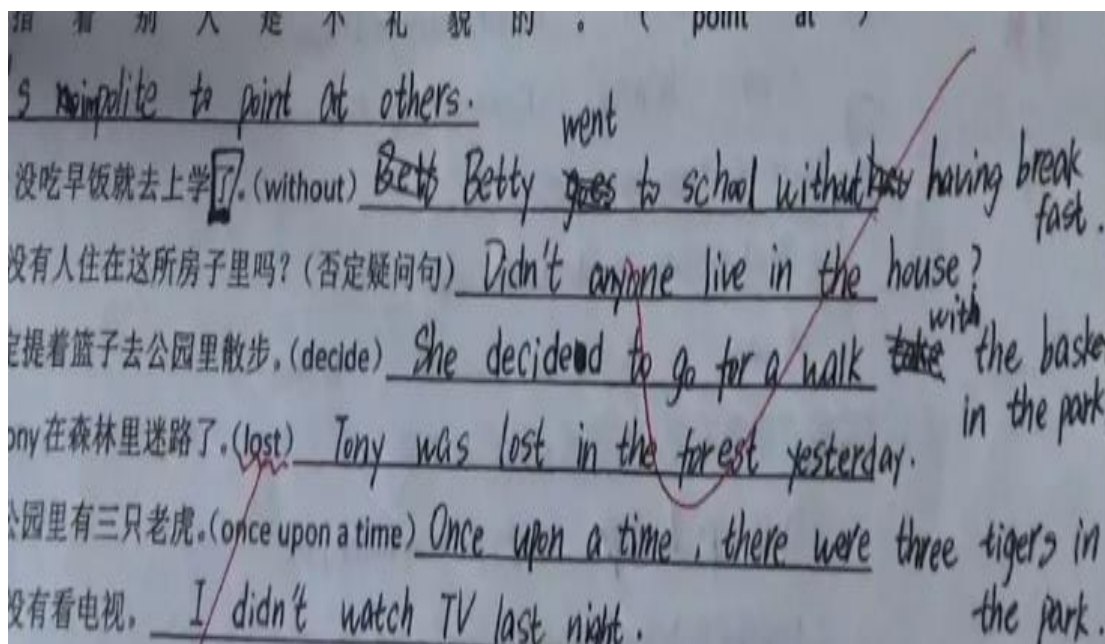 指着别人是不礼貌的。( point at )
s impolite to point at others.
没吃早饭就去上学了. (without) Betty went to school without having break
fast.
没有人住在这所房子里吗? (否定疑问句) Didn't anyone live in the house?
定提着篮子去公园里散步. (decide) She decided to go for a walk with the baske
in the park
ony在森林里迷路了. (lost) Tony was lost in the forest yesterday.
公园里有三只老虎. (once upon a time) Once upon a time, there were three tigers in
the park.
没有看电视. I didn't watch TV last night.